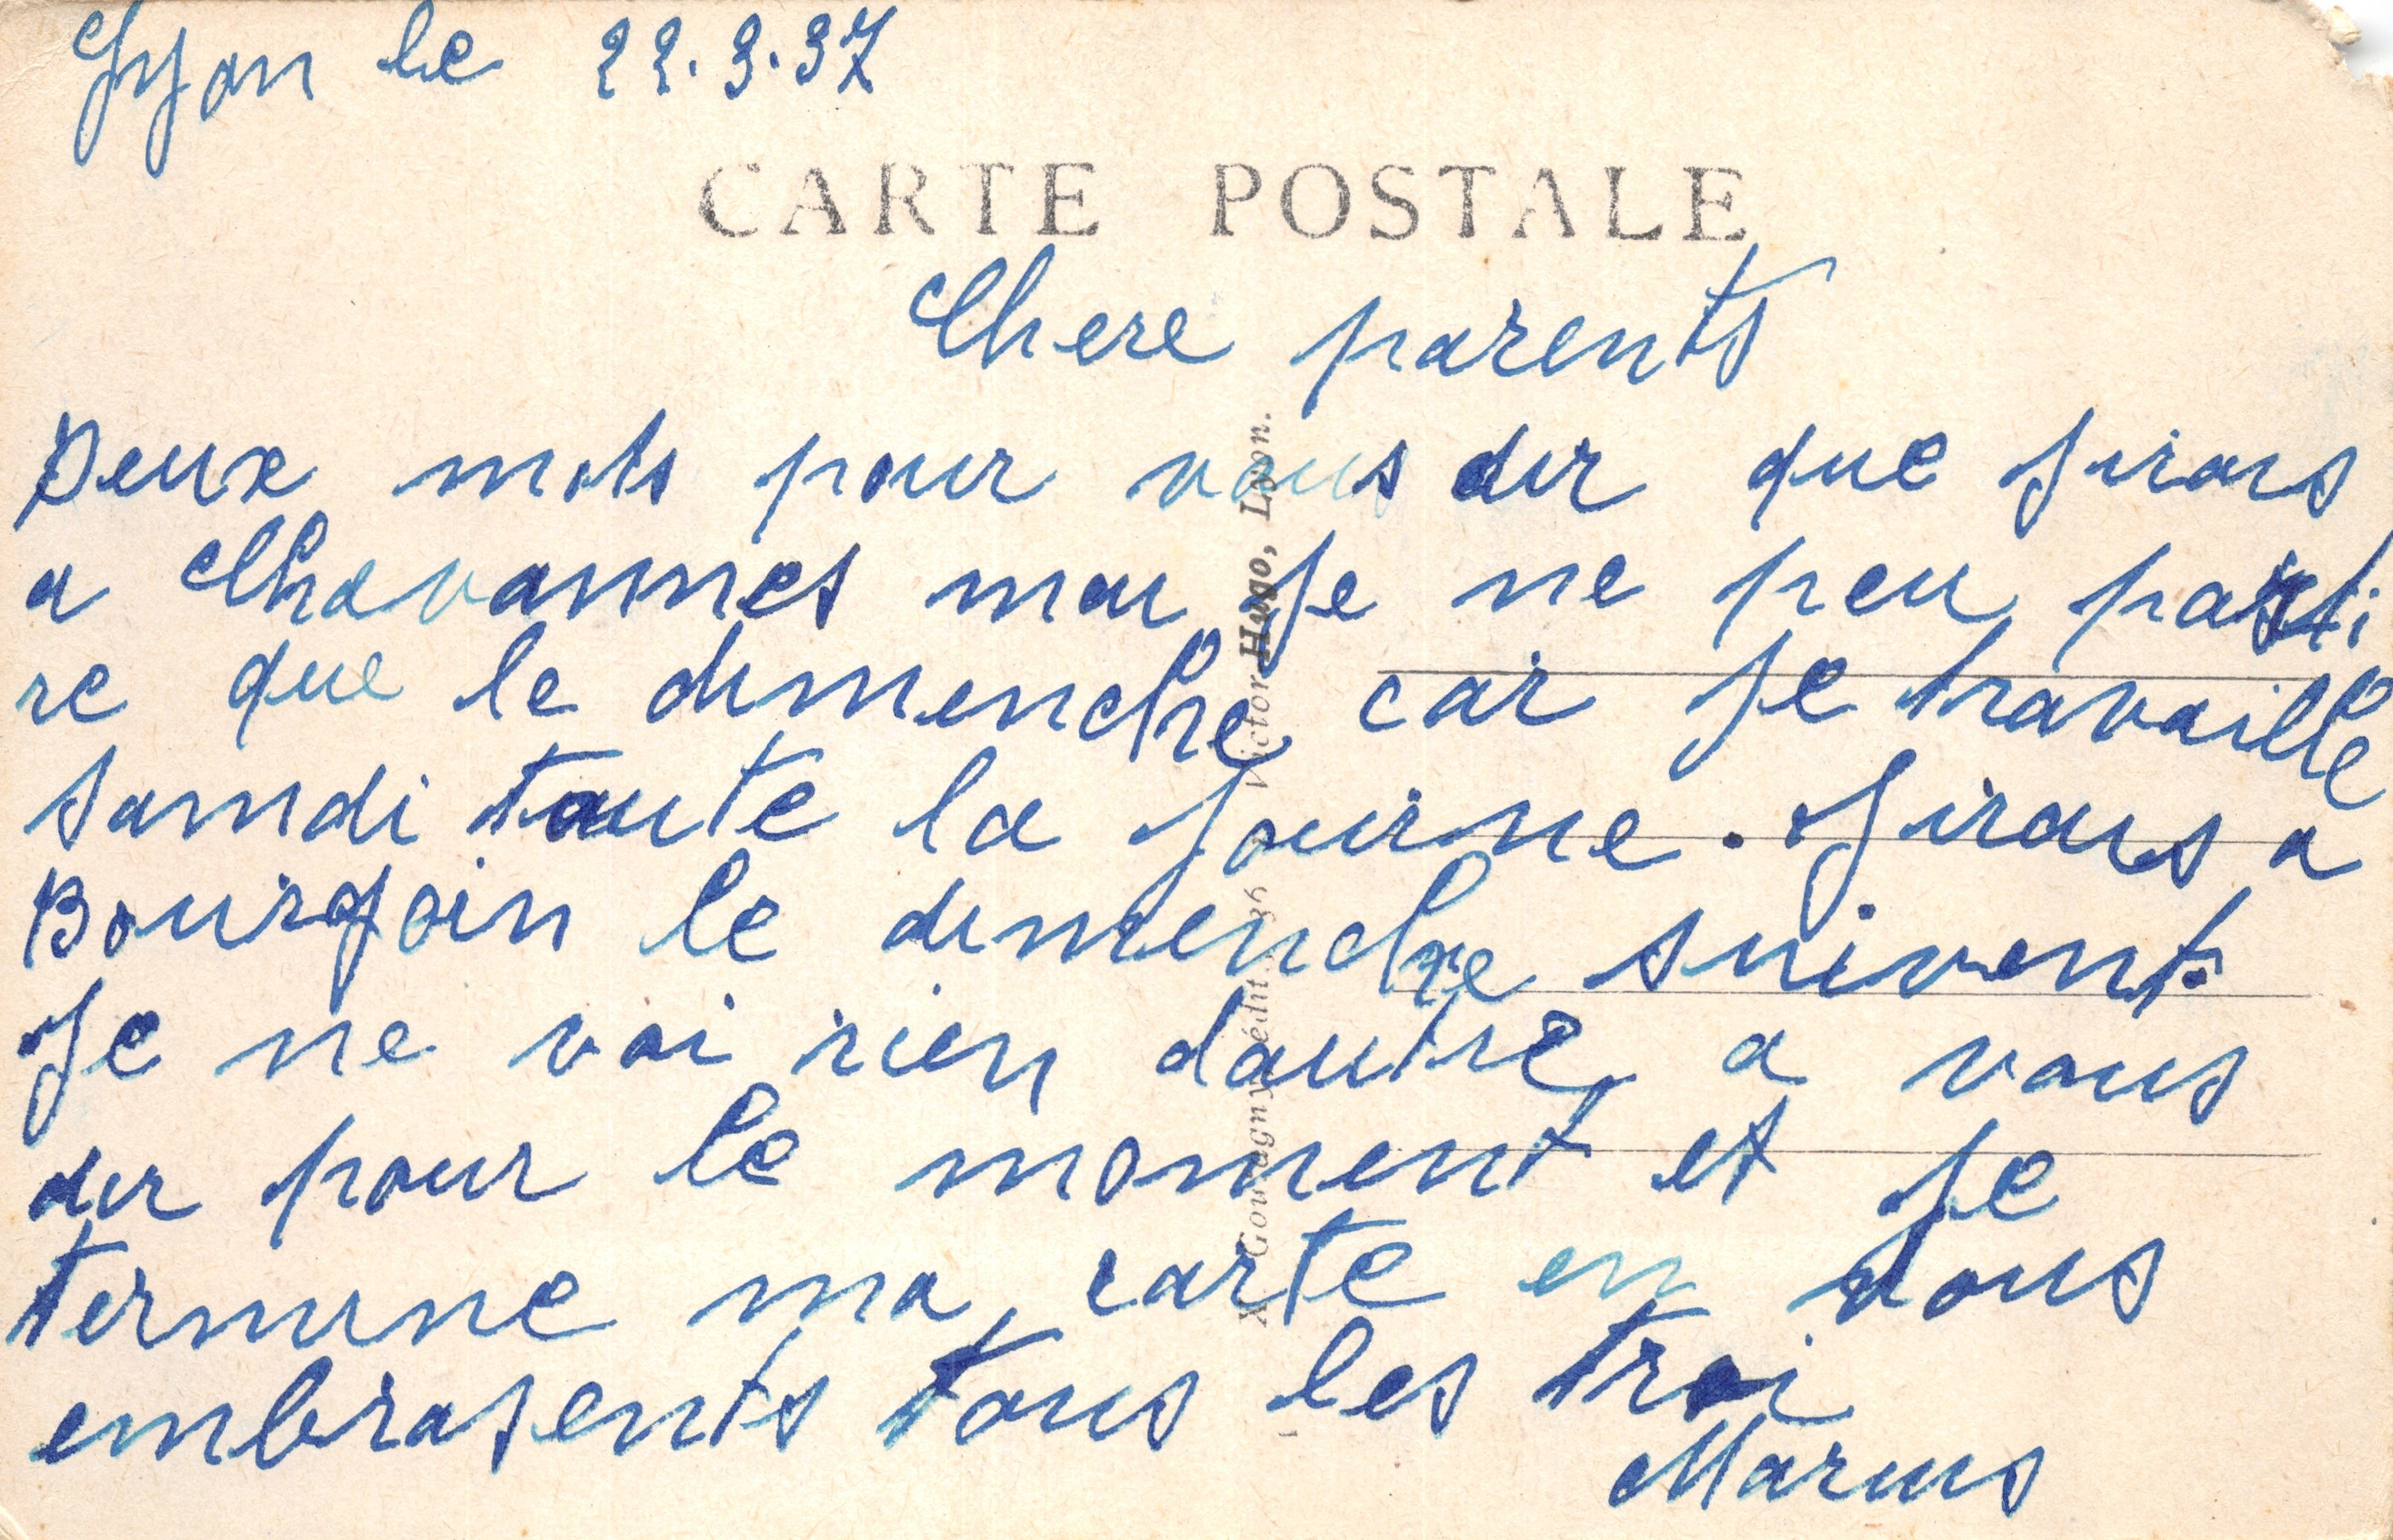 Lyon le 22.3.37
CARTE POSTALE
Chere parents
Deux mots pour vous dir que jirais
a Chavannes mai je ne peu parti
re que le dimenche car je travaille
samdi toute la journe. Jirais a
Bourgoin le dimenche suivent.
Je ne voi rien dautre a vous
dir pour le moment et je
termine ma carte en vous
embrasents tous les troi
Marius
X Goutagny, édit., 36, Victor-Hugo, Lyon.